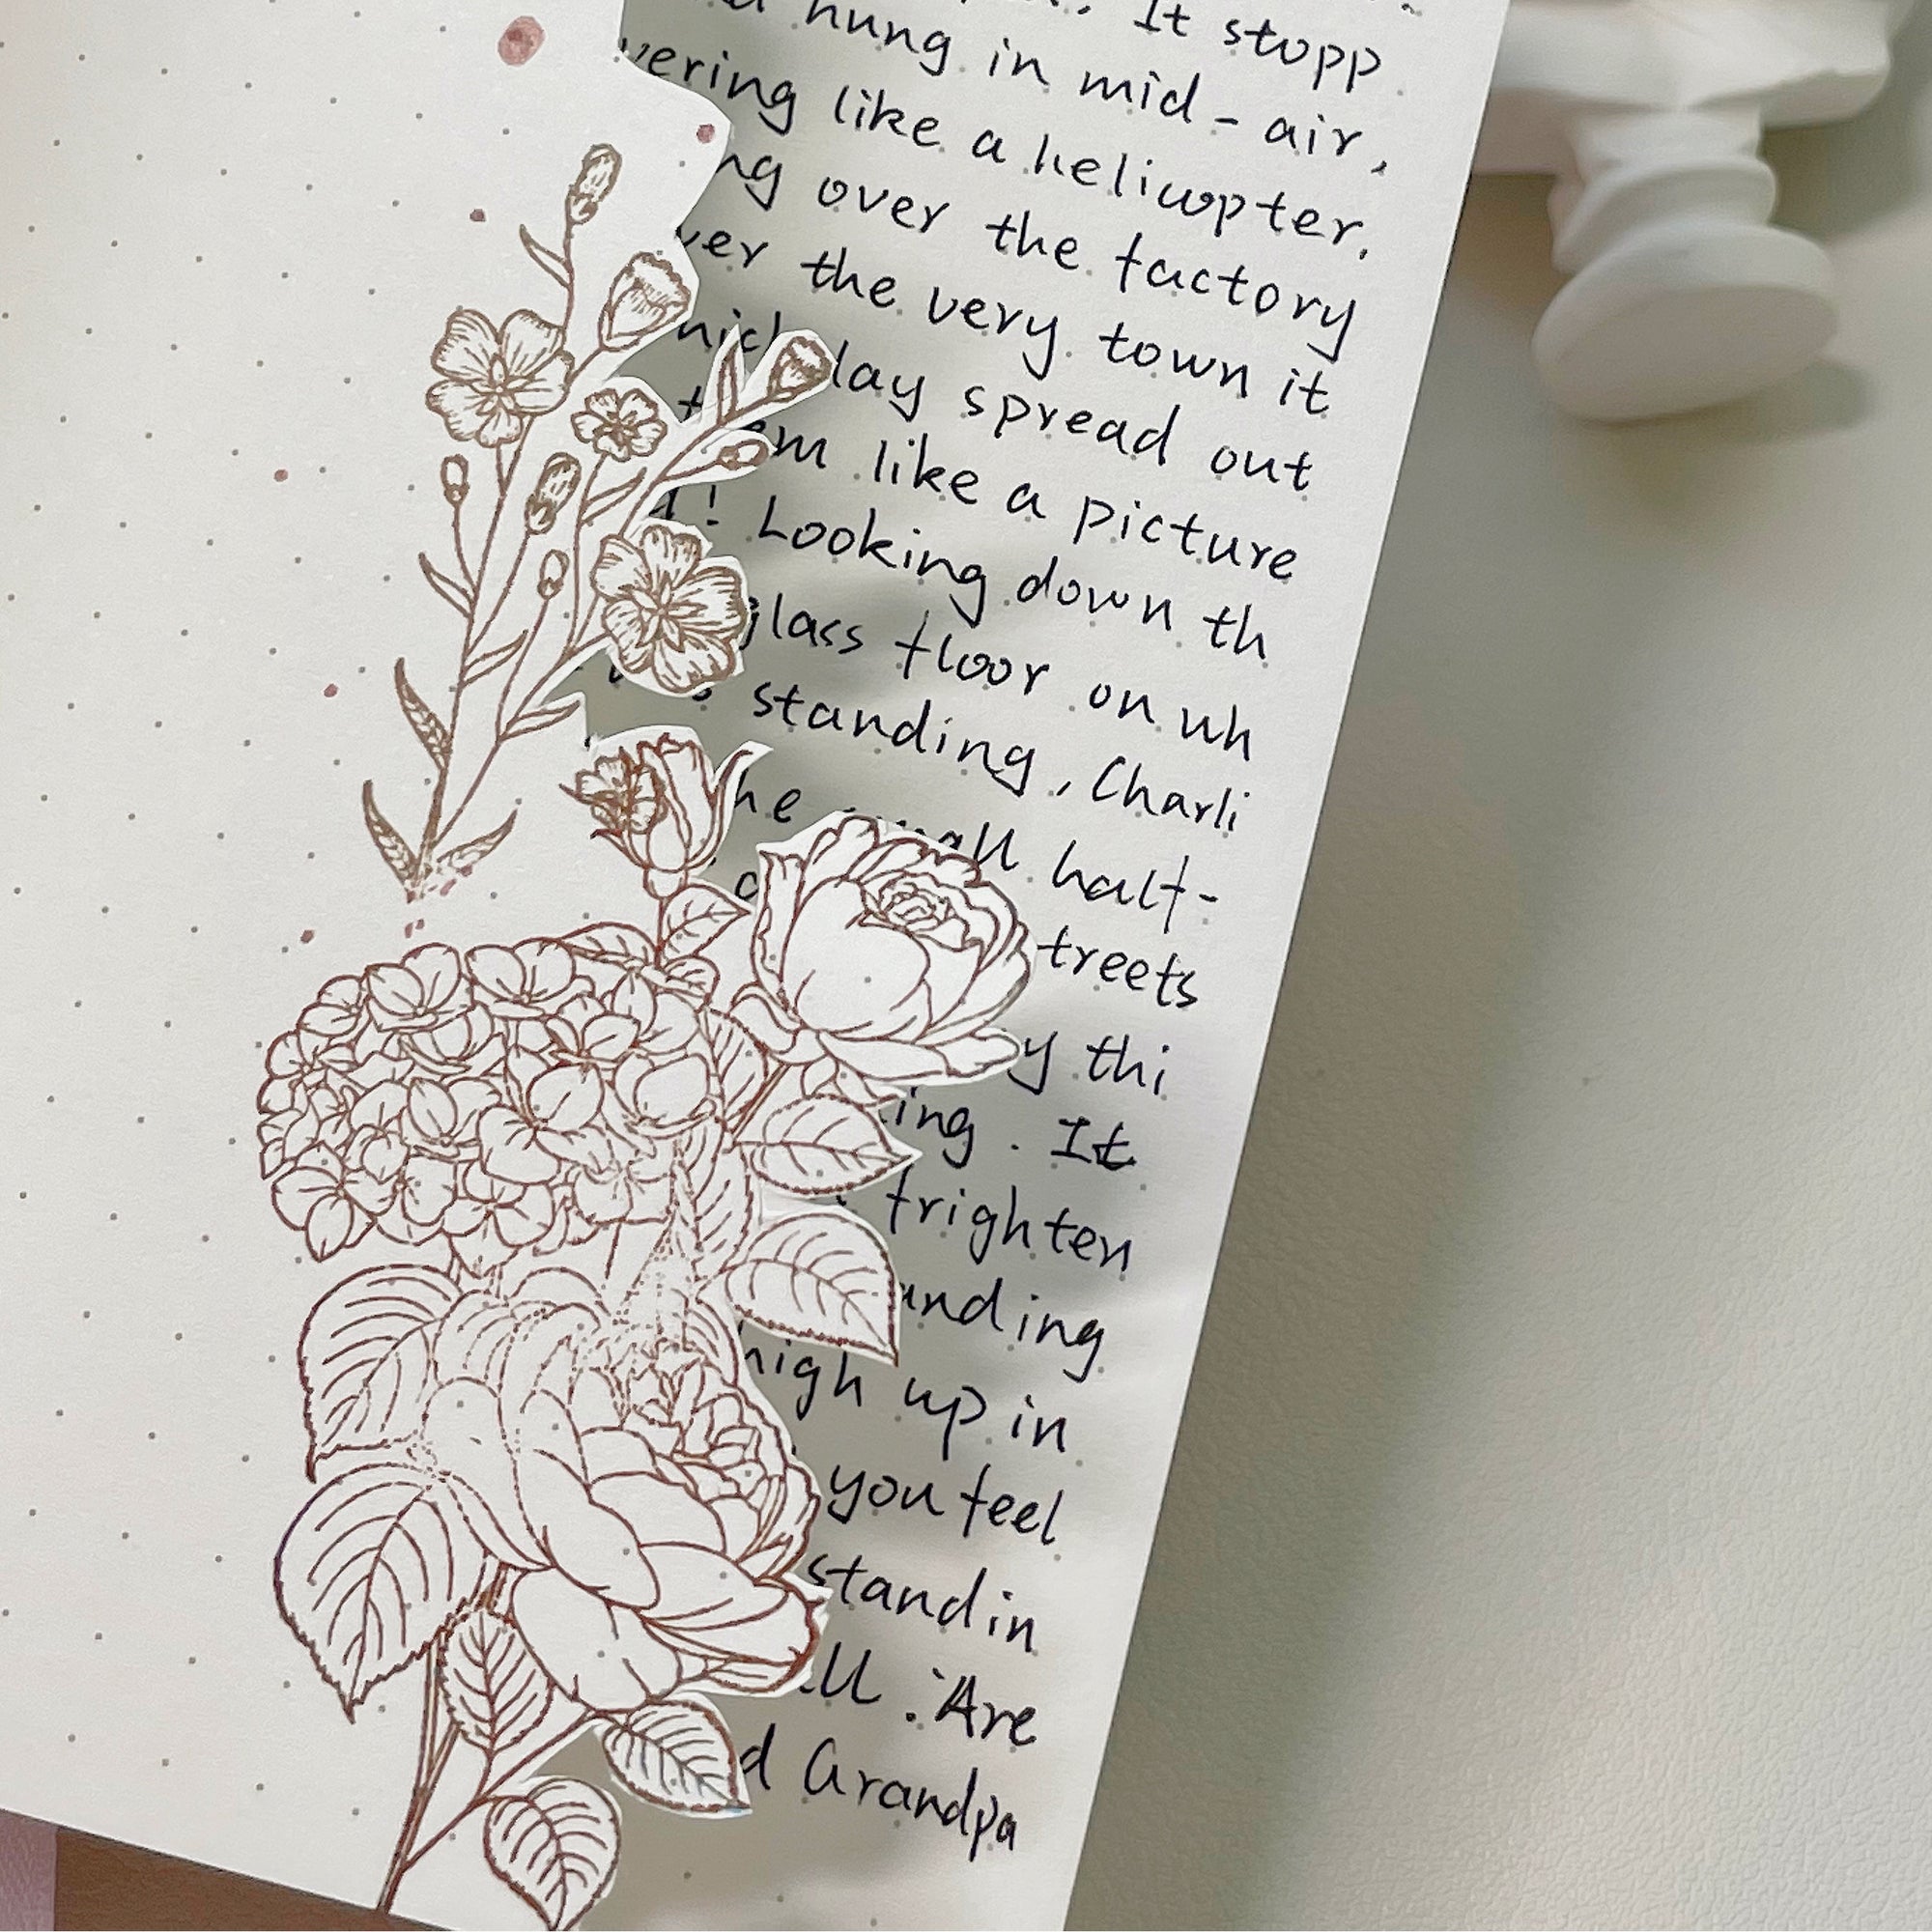 It stopp
hung in mid-air,
vering like a helicopter.
ng over the factory
ver the very town it
lay spread out
em like a picture
! Looking down th
glass floor on wh
standing, Charli
he small half-
treets
y thi
ing. It
frighten
anding
high up in
you feel
standin
all. Are
d Grandpa